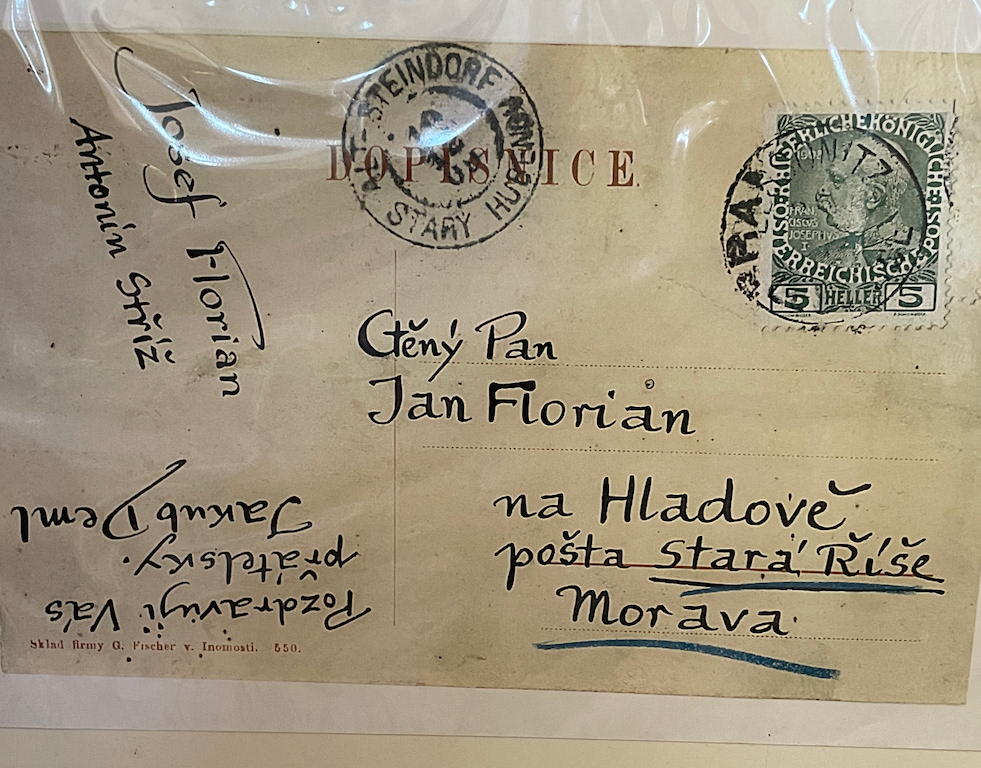 DOPISNICE.
ALT-STEINDORF
STARY
KAISERLICHE KÖNIGLICHE
ÖSTERREICHISCHE POST
1908
FRAN
CISCUS
JOSEPHUS
I
5 HELLER 5
Josef Florian
Antonín Stříž
Pozdravuji Vás
přátelsky.
Jakub Deml
Ctěný Pan
Jan Florian
na Hladově
pošta Stará Říše
Morava
Sklad firmy G. Fischer v. Inomosti. 550.